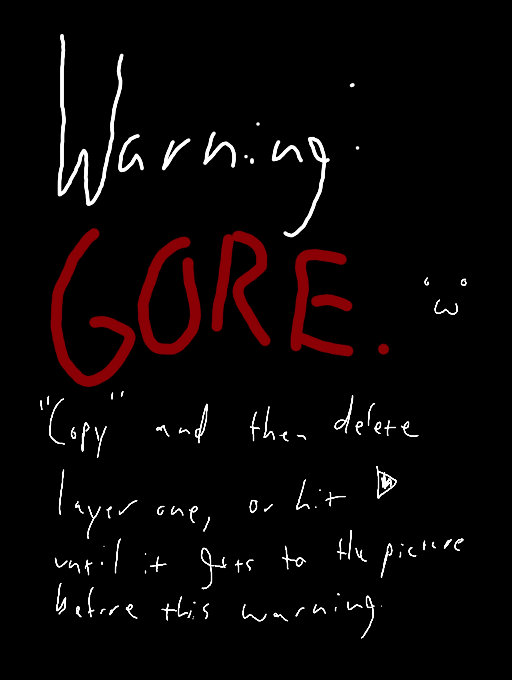 Warning:
GORE.
"Copy" and then delete
layer one, or hit
until it gets to the picture
before this warning.